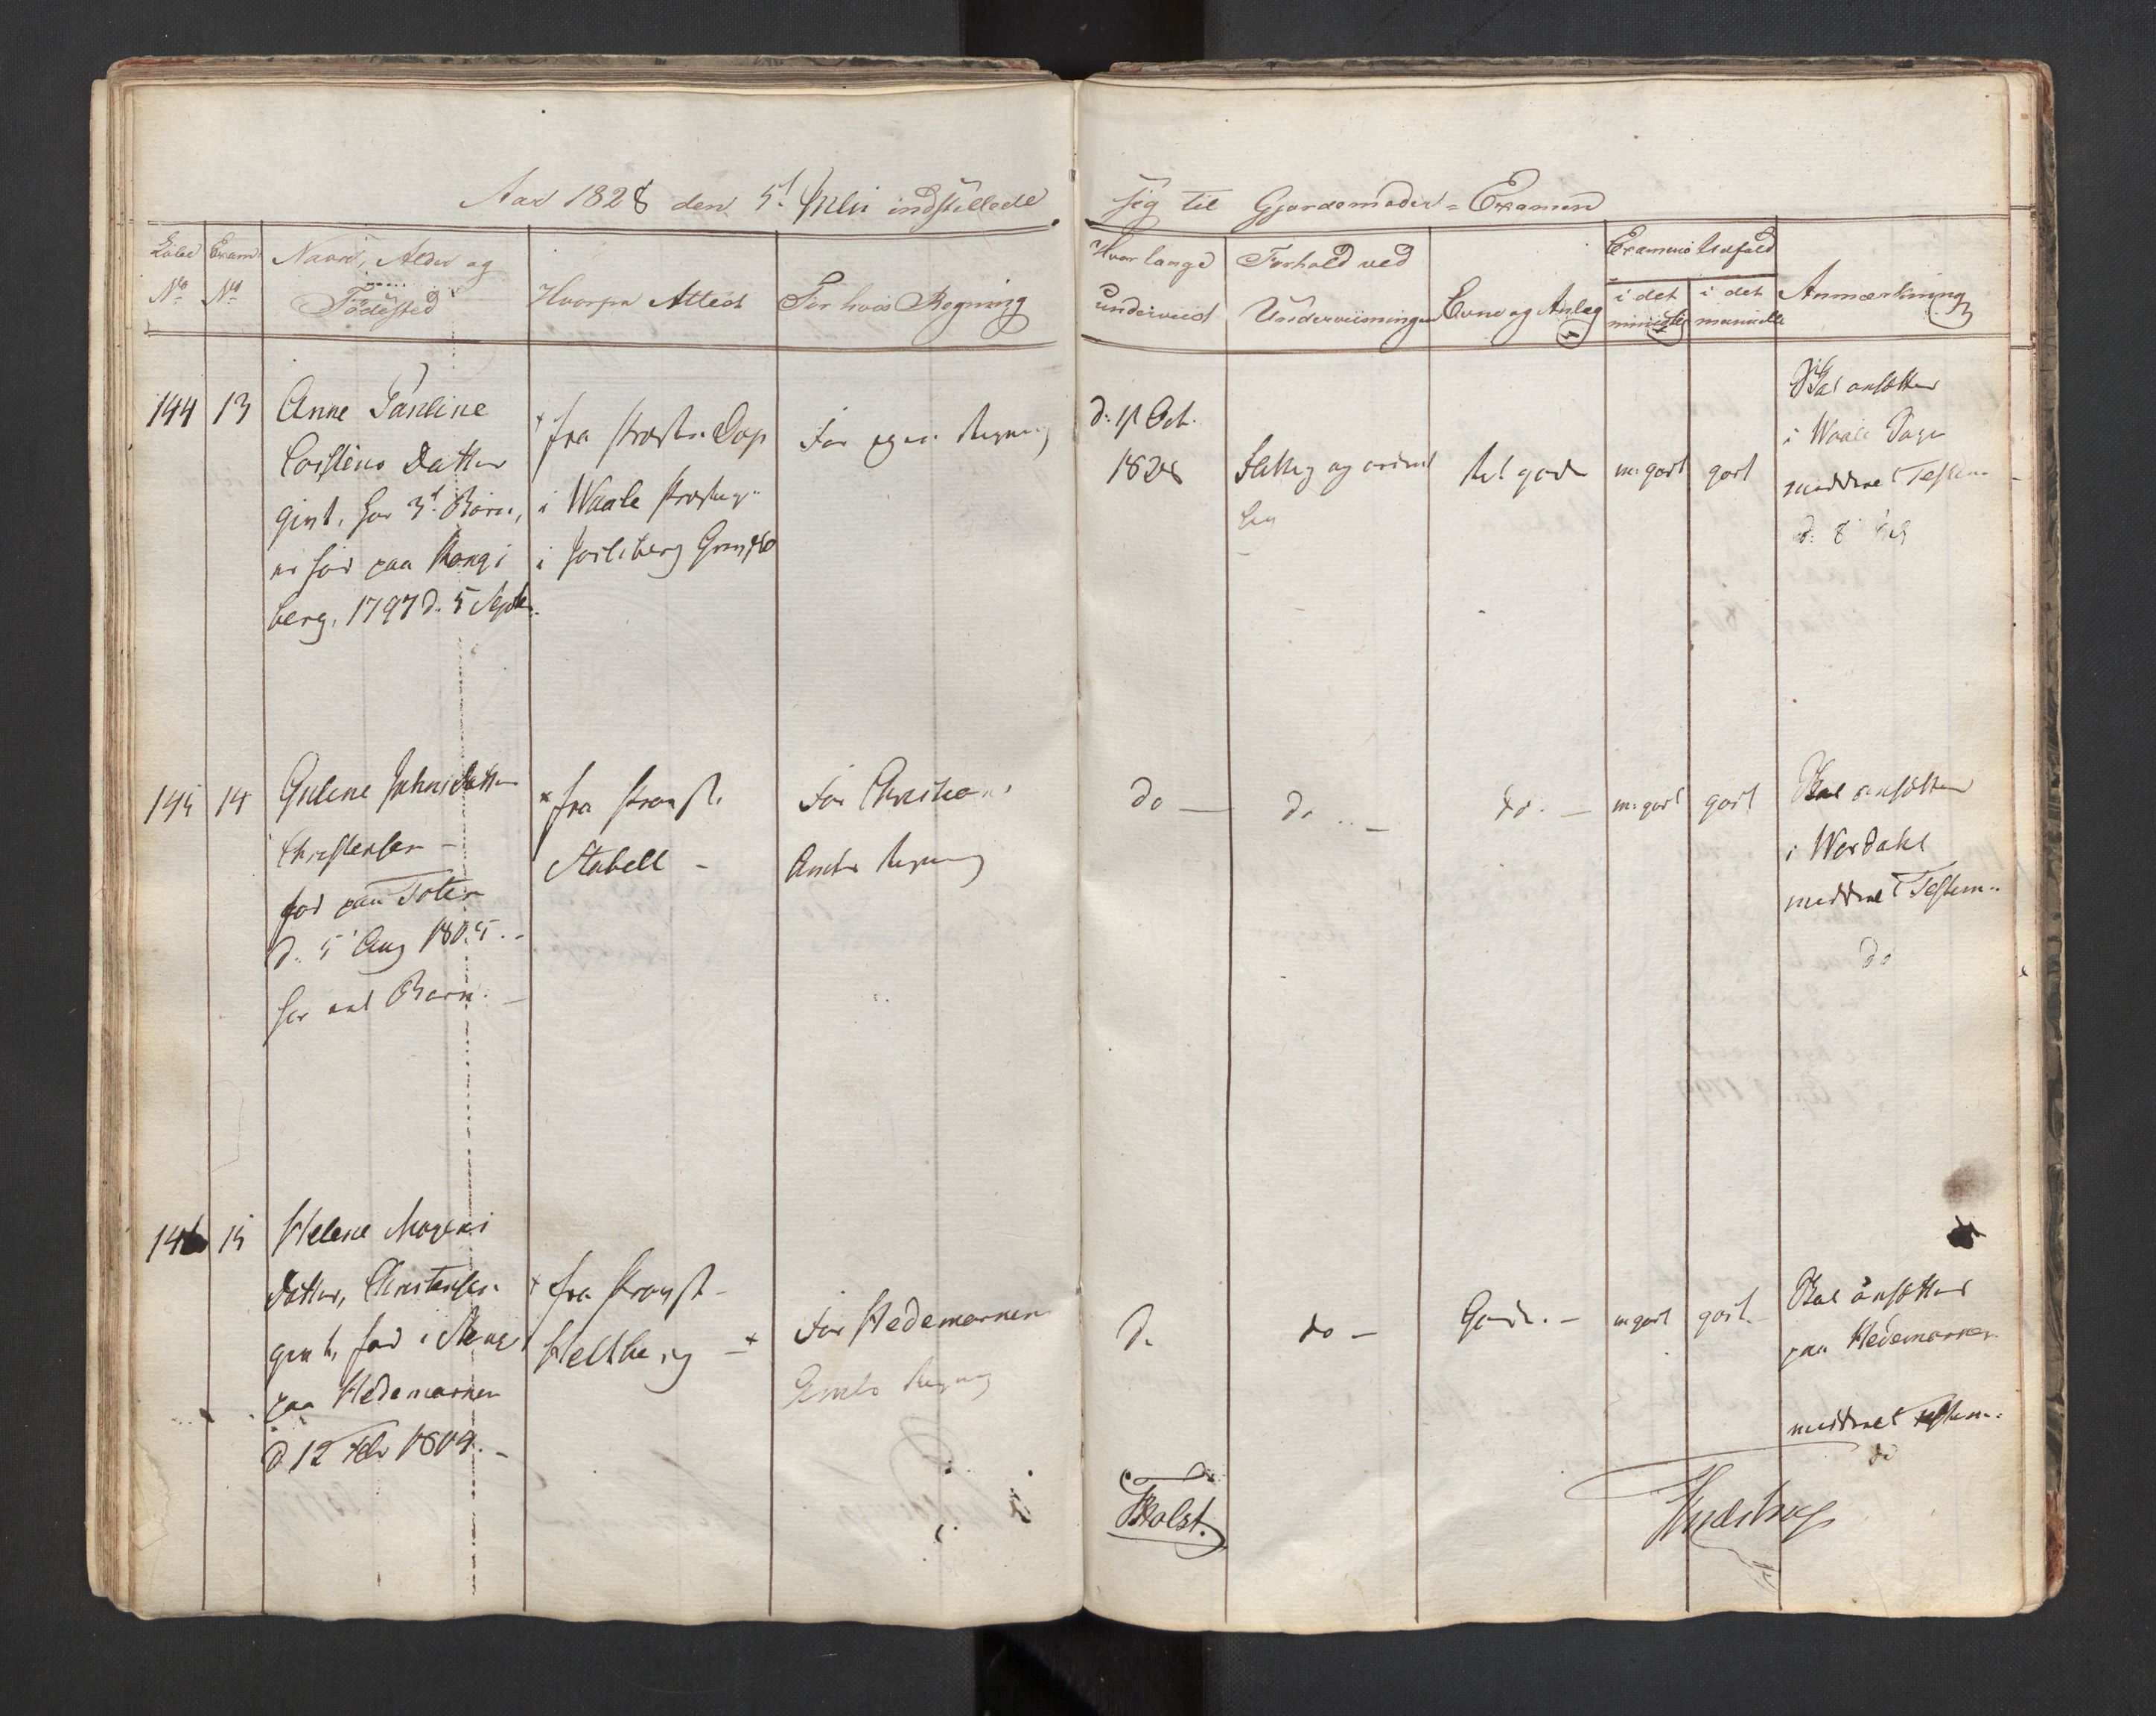 Aar 1828 den 5t Julii indstillede
sig til Gjordemoder-Examen
Løbe Exam
No No
Navn, Alder og
Födested
Hvorfra Attest
For hvis Regning
Hvor lange
underviist
Forhold ved
Underviisningen
Evne og Anlæg
Examens Udfald
i det
i det
manuelle
Anmærkning
144 13
Anne Pauline
Datter
givt, har 3d Børn,
er föd paa Kongs
berg, 1797 d. 5 Septbr.
fra Præsten Dop
i Waale Præsteg
i Jarlsberg Grevsk
for egen Regning
d: 1t Oct.
1828
Flittig og ordent
lig
Ret gode
m: godt
godt
Skal ansættes
i Waale Sogn
meddeelt Testim.
d: 8
145 14
Gulene Johnsdatter
Christensen -
föd paa Toten
d. 5 Aug 1805. -
har eet Barn. -
fra Provst
Stabell -
for Christians
Amts Regning
do -
do -
do. -
m: godt
godt
Skal ansættes
i Werdahl
meddeelt Testim.
do
146 15
Helene Mogens
datter, Christensen
givt, föd i Stange
paa Hedemarken
d 12 Febr 1804. -
fra Provst -
Heltberg -
for Hedemarkens
Amts Regning
do
do -
Gode. -
m godt
godt. -
Skal ansættes
paa Hedemarken
meddeelt Testim:
do
Holst.